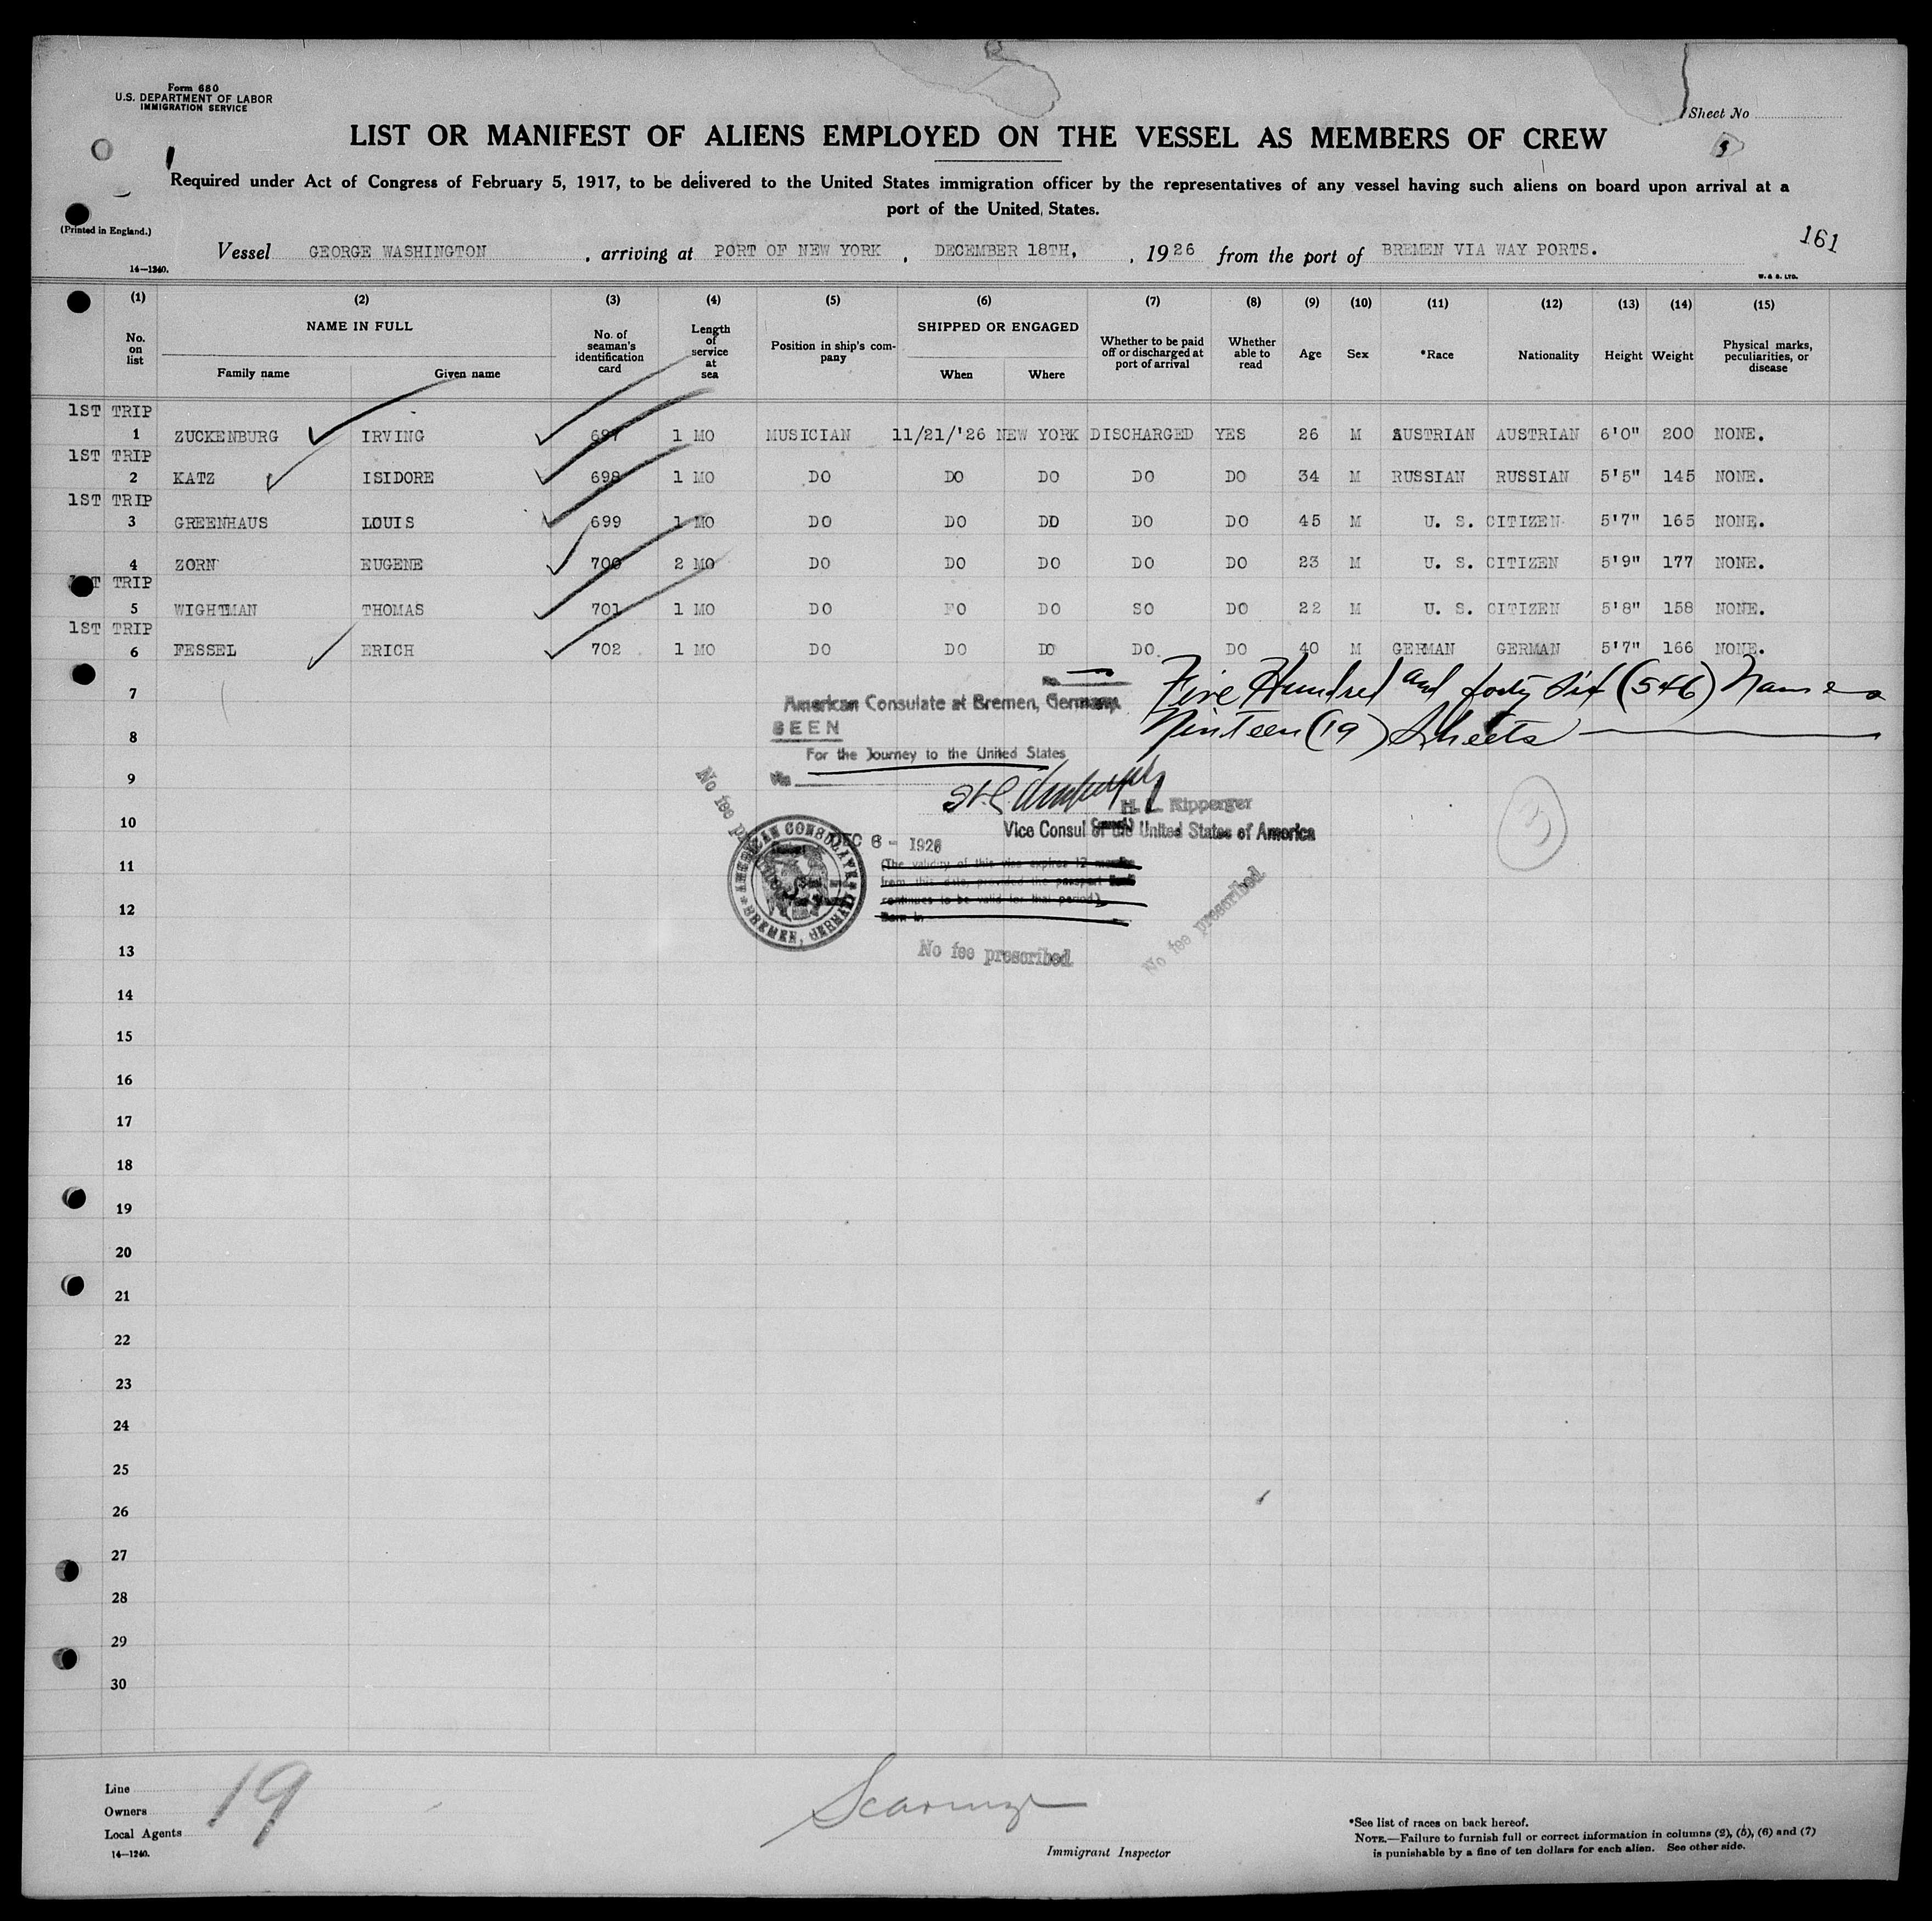 Form 680
U.S. DEPARTMENT OF LABOR
IMMIGRATION SERVICE
Sheet No
LIST OR MANIFEST OF ALIENS EMPLOYED ON THE VESSEL AS MEMBERS OF CREW
Required under Act of Congress of February 5, 1917, to be delivered to the United States immigration officer by the representatives of any vessel having such aliens on board upon arrival at a
port of the United States.
(Printed in England.)
161
Vessel GEORGE WASHINGTON , arriving at PORT OF NEW YORK , DECEMBER 18TH, , 1926 from the port of BREMEN VIA WAY PORTS.
14—1240.
W. & S. LTD.
(1) (2) (3) (4) (5) (6) (7) (8) (9) (10) (11) (12) (13) (14) (15)
No. on list NAME IN FULL Family name Given name No. of seaman's identification card Length of service at sea Position in ship's company SHIPPED OR ENGAGED When Where Whether to be paid off or discharged at port of arrival Whether able to read Age Sex *Race Nationality Height Weight Physical marks, peculiarities, or disease
1ST TRIP
1 ZUCKENBURG IRVING 697 1 MO MUSICIAN 11/21/'26 NEW YORK DISCHARGED YES 26 M AUSTRIAN AUSTRIAN 6'0" 200 NONE.
1ST TRIP
2 KATZ ISIDORE 698 1 MO DO DO DO DO DO 34 M RUSSIAN RUSSIAN 5'5" 145 NONE.
1ST TRIP
3 GREENHAUS LOUIS 699 1 MO DO DO DD DO DO 45 M U. S. CITIZEN 5'7" 165 NONE.
4 ZORN EUGENE 700 2 MO DO DO DO DO DO 23 M U. S. CITIZEN 5'9" 177 NONE.
1ST TRIP
5 WIGHTMAN THOMAS 701 1 MO DO FO DO SO DO 22 M U. S. CITIZEN 5'8" 158 NONE.
1ST TRIP
6 FESSEL ERICH 702 1 MO DO DO DO DO. DO 40 M GERMAN GERMAN 5'7" 166 NONE.
7
Five Hundred and forty six (546) Names
American Consulate at Bremen, Germany.
SEEN
Nineteen (19) Sheets
8
For the Journey to the United States
9
No
No fee
H. L. Ripperger
10
Vice Consul of the United States of America
DEC 6 - 1926
AMERICAN CONSULATE BREMEN, GERMANY
11
(The validity of this visa expires 12 months
from this date, provided the passport
continues to be valid for that period)
Born in
12
No fee prescribed.
No fee prescribed.
13
14
15
16
17
18
19
20
21
22
23
24
25
26
27
28
29
30
Line
Owners
Local Agents
14—1240.
19
Immigrant Inspector
*See list of races on back hereof.
NOTE.—Failure to furnish full or correct information in columns (2), (5), (6) and (7)
is punishable by a fine of ten dollars for each alien. See other side.